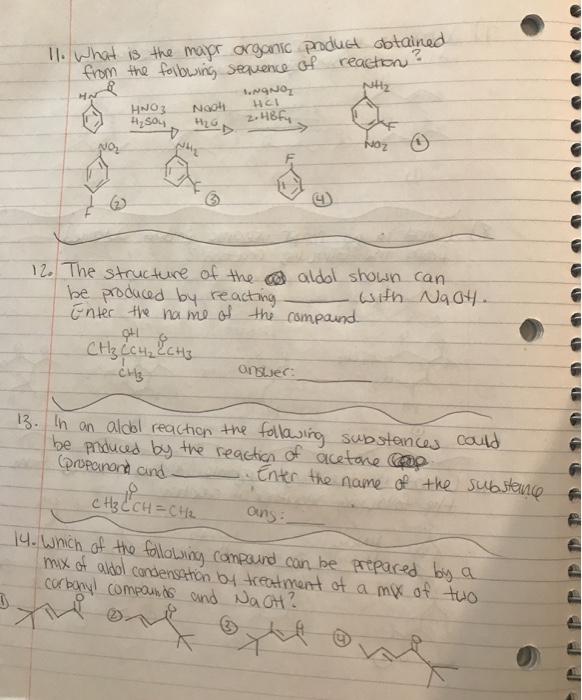 11. What is the major organic product obtained
from the following sequence of reaction?
HN
HNO3
H2SO4
NaOH
H2O
1. NaNO2
HCl
2. HBF4
NH2
F
NO2
①
NO2
F
②
NH2
F
③
F
④
12. The structure of the aldol shown can
be produced by reacting ______ with NaOH.
Enter the name of the compound.
OH O
CH3CCH2CCH3
CH3
answer: ______
13. In an aldol reaction the following substances could
be produced by the reaction of acetone
(propanone and ______. Enter the name of the substance
O
CH3CCH=CH2
ans: ____
14. Which of the following compound can be prepared by a
mix of aldol condensation by treatment of a mix of two
carbonyl compounds and NaOH?
① ② ③ ④